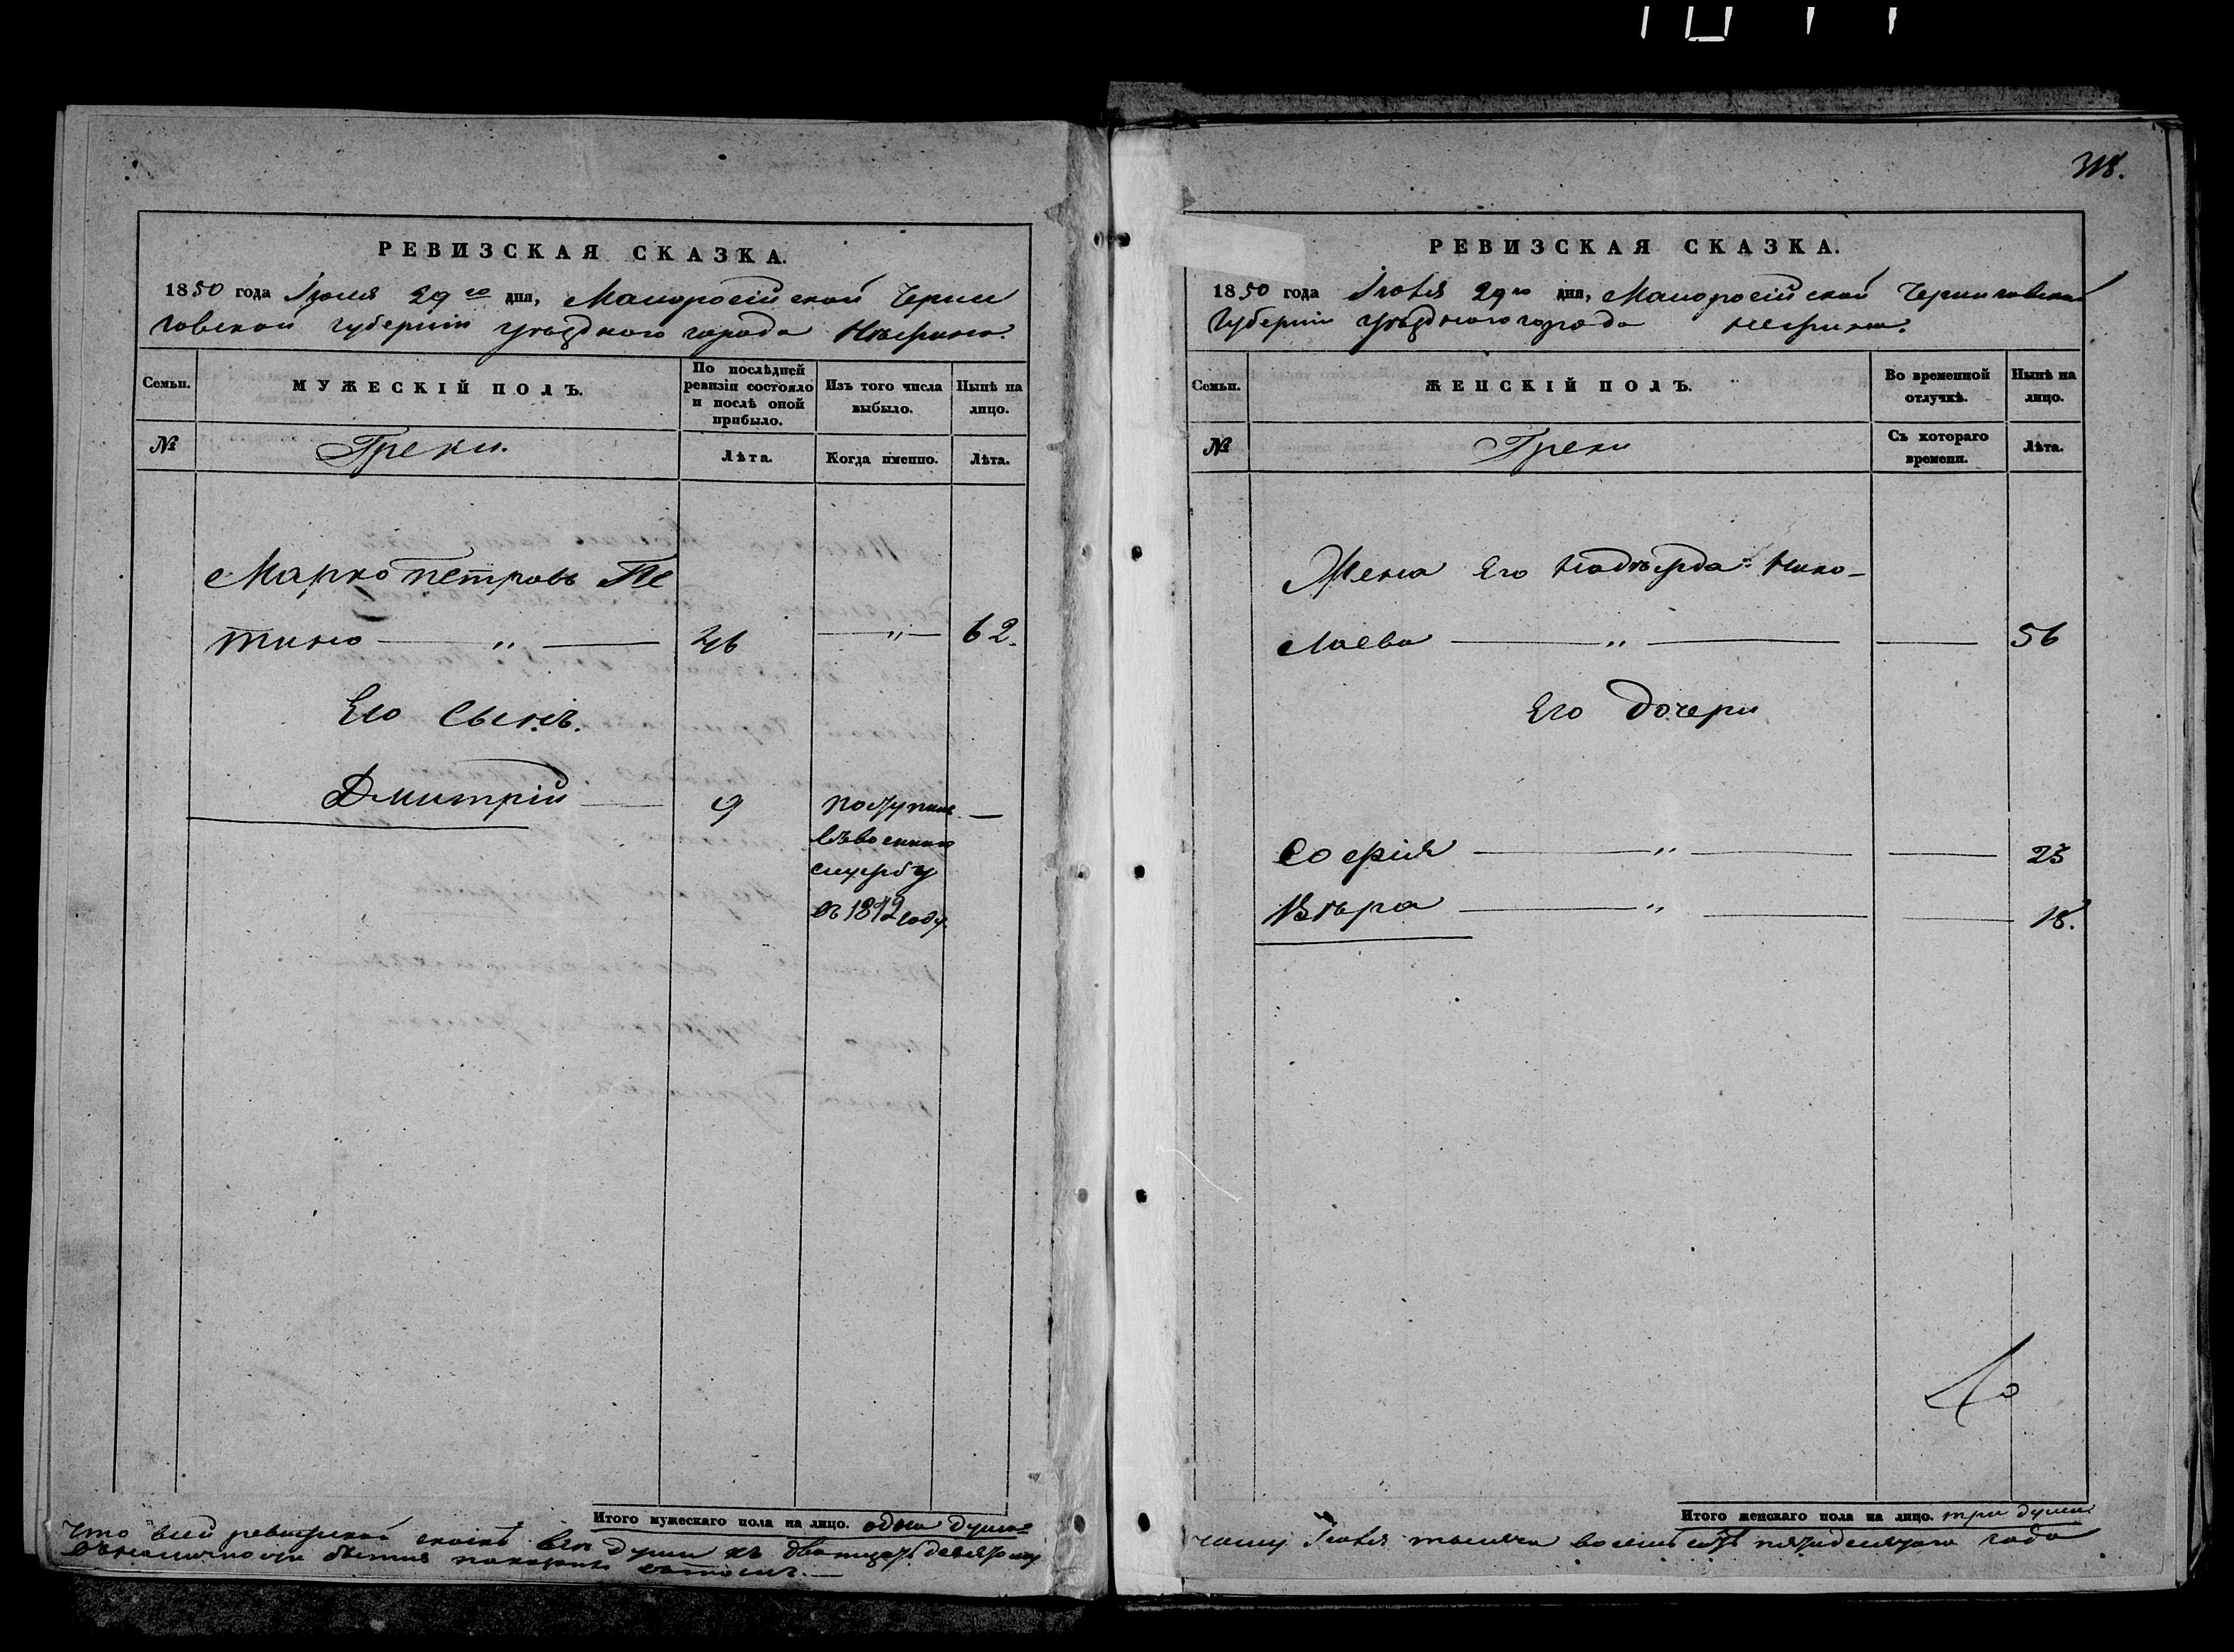 РЕВИЗСКАЯ СКАЗКА.
1850 года Іюля 29го дня, Малоросійской Черни
говской губерніи уѣзднаго города Нѣжина.
Семьи.
МУЖЕСКІЙ ПОЛЪ.
По послѣдней ревизіи состояло и послѣ оной прибыло.
Изъ того числа выбыло.
Нынѣ на лицо.
№
Греки.
Лѣта.
Когда именно.
Лѣта.
Марко Петровъ Пе
тино — „ — 46 — „ — 62.
Его Сынъ.
Дмитрій — 9 поступилъ —
въ военную
службу
въ 1842 году.
Итого мужескаго пола на лицо. одна душа
Что в сей ревизской сказкѣ все души къ дватцать девятому
РЕВИЗСКАЯ СКАЗКА.
1850 года Іюля 29го дня, Малоросійской Черниговской
Губерніи уѣзднаго города Нежина.
Семьи.
ЖЕНСКІЙ ПОЛЪ.
Во временной отлучкѣ.
Нынѣ на лицо.
№
Греки
Съ котораго времени.
Лѣта.
Жена Его Надѣжда Нико-
лаева — „ — — 56
Его дочери
Софія — „ — — 23
Вѣра — „ — — 18.
Итого женскаго пола на лицо. три души
числу Іюля тысяча восемь сотъ пятидесятого года